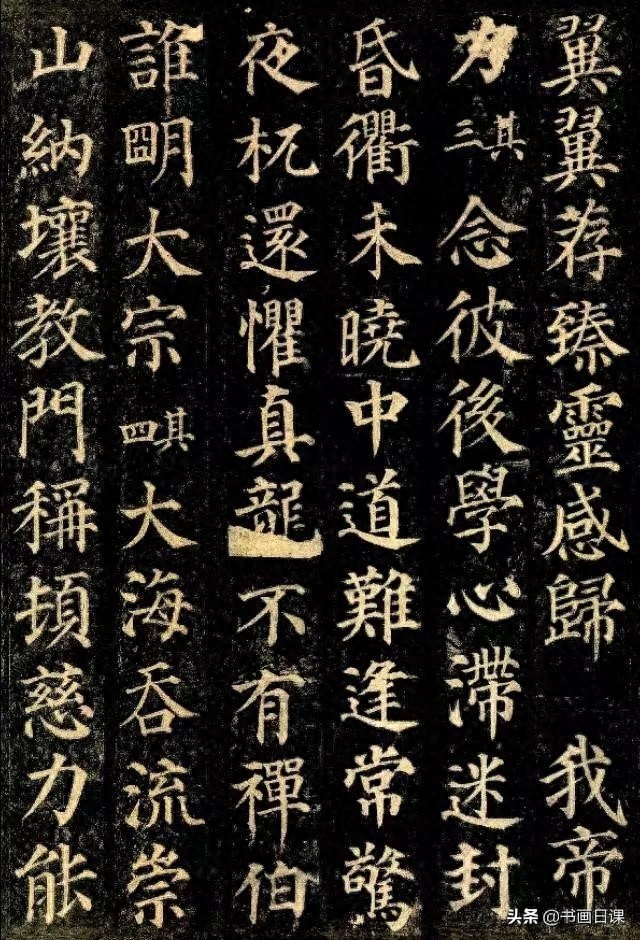 翼翼荐臻靈感歸 我帝
力其三念彼後學心滯迷封
昏衢未曉中道難逢常驚
夜杌還懼真龍不有禪伯
誰明大宗其四大海吞流崇
山納壤教門稱頓慈力能
头条 @书画日课